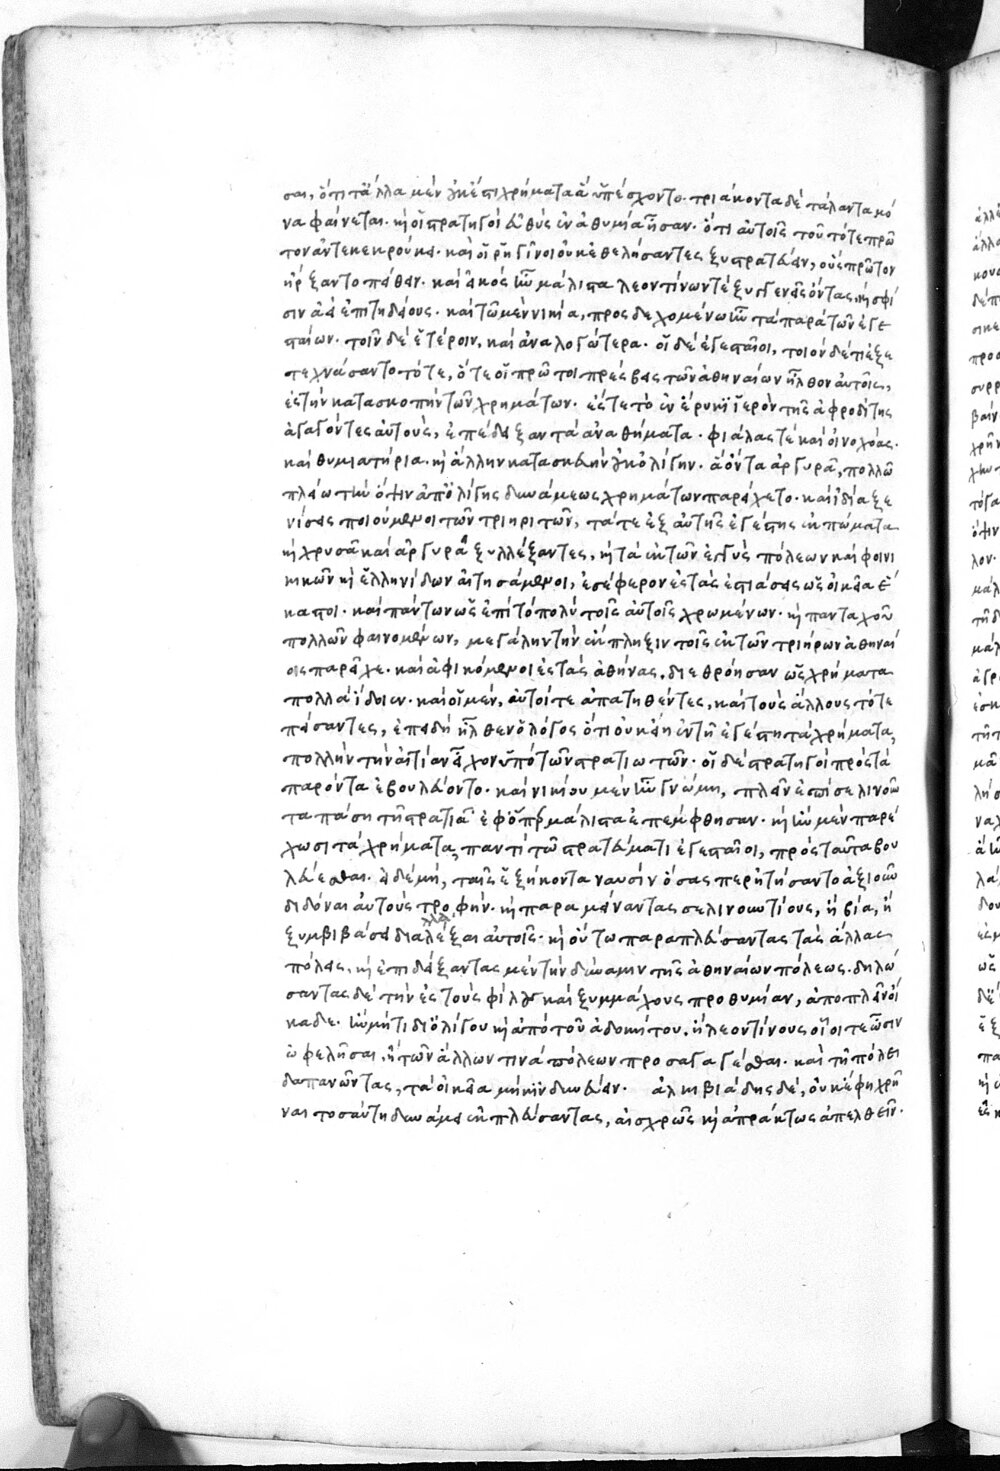 σαι, ὅτι τἄλλα μὲν οὐκ ἔστι χρήματα ἃ ὑπέσχοντο· τριάκοντα δὲ τάλαντα μό
να φαίνεται· καὶ οἱ στρατηγοὶ εὐθὺς ἐν ἀθυμία ἦσαν· ὅτι αὐτοῖς τοῦτό τε πρῶ
τον ἀντεκεκρούκει· καὶ οἱ ῥηγῖνοι οὐκ ἐθελήσαντες ξυστρατεύειν, οὓς πρῶτον
ἤρξαντο πείθειν· καὶ εἰκὸς ἦν μάλιστα λεοντίνων τὲ ξυγγενεῖς ὄντας, καὶ σφί
σιν ἀεὶ ἐπιτηδείους· καὶ τῶ μὲν νικία, προσδεχομένω ἦν τὰ παρὰ τῶν ἐγε
σταίων· τοῖν δὲ ἑτέροιν, καὶ ἀναλογώτερα· οἱ δὲ ἐγεσταῖοι, τοιόνδέ τι ἐξε
τεχνήσαντο τότε, ὅτε οἱ πρῶτοι πρέσβεις τῶν ἀθηναίων ἦλθον αὐτοῖς,
ἐς τὴν κατασκοπὴν τῶν χρημάτων· ἔς τε τὸ ἐν ἔρυκϊ ἱερὸν τῆς ἀφροδίτης
ἀγαγόντες αὐτοὺς, ἐπέδειξαν τὰ ἀναθήματα· φιάλας τὲ καὶ οἰνοχόας·
καὶ θυμιατήρια· καὶ ἄλλην κατασκευὴν οὐκ ὀλίγην· ἃ ὄντα ἀργυρᾶ, πολλῶ
πλείω τὴν ὄψιν ἀπ᾽ ὀλίγης δυνάμεως χρημάτων παρείχετο· καὶ ἰδία ξε
νίσεις ποιούμενοι τῶν τριηριτῶν, τά τε ἐξ αὐτῆς ἐγέστης ἐκπώματα
καὶ χρυσᾶ καὶ ἀργυρᾶ ξυλλέξαντες, καὶ τὰ ἐκ τῶν ἐγγὺς πόλεων καὶ φοινι
κικῶν καὶ ἑλληνίδων αἰτησάμενοι, ἐσέφερον ἐς τὰς ἑστιάσεις ὡς οἰκεῖα ἕ
καστοι· καὶ πάντων ὡς ἐπὶ τὸ πολὺ τοῖς αὐτοῖς χρωμένων· καὶ πανταχοῦ
πολλῶν φαινομένων, μεγάλην τὴν ἔκπληξιν τοῖς ἐκ τῶν τριήρων ἀθηναί
οις παρεῖχε· καὶ ἀφικόμενοι ἐς τὰς ἀθήνας, διεθρόησαν ὡς χρήματα
πολλὰ ἴδοιεν· καὶ οἱ μὲν, αὐτοί τε ἀπατηθέντες, καὶ τοὺς ἄλλους τότε
πείσαντες, ἐπειδὴ ἦλθεν ὁ λόγος ὅτι οὐκ εἴη ἐν τῆ ἐγέστη τὰ χρήματα,
πολλὴν τὴν αἰτίαν εἶχον ὑπὸ τῶν στρατιωτῶν· οἱ δὲ στρατηγοὶ πρὸς τὰ
παρόντα ἐβουλεύοντο· καὶ νικίου μὲν ἦν γνώμη, πλεῖν ἐπὶ σελινοῦν
τα πάση τῆ στρατιᾶ ἐφ᾽ ὅπερ μάλιστα ἐπέμφθησαν· καὶ ἢν μὲν παρέ
χωσι τὰ χρήματα, παντὶ τῶ στρατεύματι ἐγεσταῖοι, πρὸς ταῦτα βου
λεύεσθαι· εἰ δὲ μή, ταῖς ἑξήκοντα ναυσὶν ὅσας περ ἠτήσαντο ἀξιοῦν
διδόναι αὐτοὺς τροφήν· καὶ παραμείναντας σελινουντίους, ἢ βία, ἢ
ξυμβιβάσει διαλέξαι αὐτοῖς· καὶ οὕτω παραπλεύσαντας τὰς ἄλλας
πόλεις, καὶ ἐπιδείξαντας μὲν τὴν δύναμιν τῆς ἀθηναίων πόλεως· δηλώ
σαντας δὲ τὴν ἐς τοὺς φίλους καὶ ξυμμάχους προθυμίαν, ἀποπλεῖν οἴ
καδε· ἢν μή τι δι᾽ ὀλίγου καὶ ἀπὸ τοῦ ἀδοκήτου, ἢ λεοντίνους οἷοί τε ὦσιν
ὠφελῆσαι, ἢ τῶν ἄλλων τινὰ πόλεων προσαγαγέσθαι· καὶ τῆ πόλει
δαπανῶντας, τὰ οἰκεῖα μὴ κινδυνεύειν· ἀλκιβιάδης δὲ, οὐκ ἔφη χρῆ
ναι τοσαύτη δυνάμει ἐκπλεύσαντας, αἰσχρῶς καὶ ἀπράκτως ἀπελθεῖν·